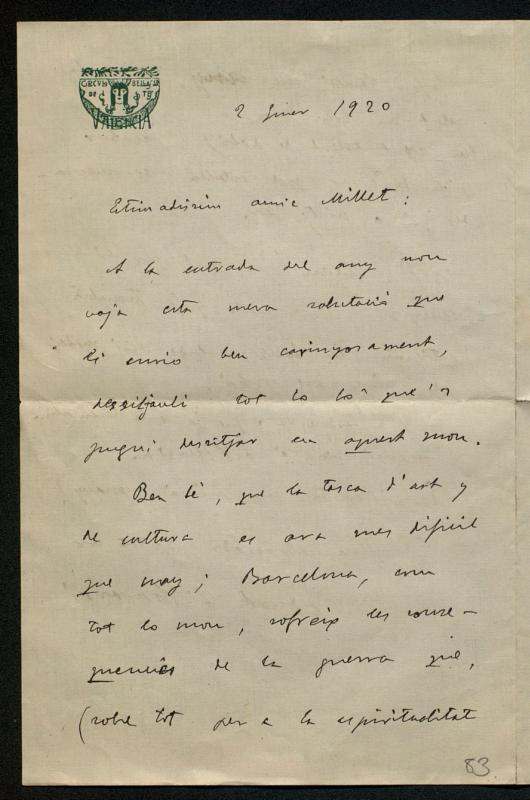 CIRCVL DE BELLES ARTS
VALENCIA
2 Giner 1920
Estimadissim amic Millet:
A la entrada del any nou
vaja esta meva salutació que
li envio ben carinyosament,
dessitjanli tot lo bò que's
pugui dessitjar en aquest mon.
Ben sé, que la tasca d'art y
de cultura es ara mes dificil
que may; Barcelona, com
tot lo mon, sofreix les conse-
quencies de la guerra que,
(sobre tot per a la espiritualitat
83